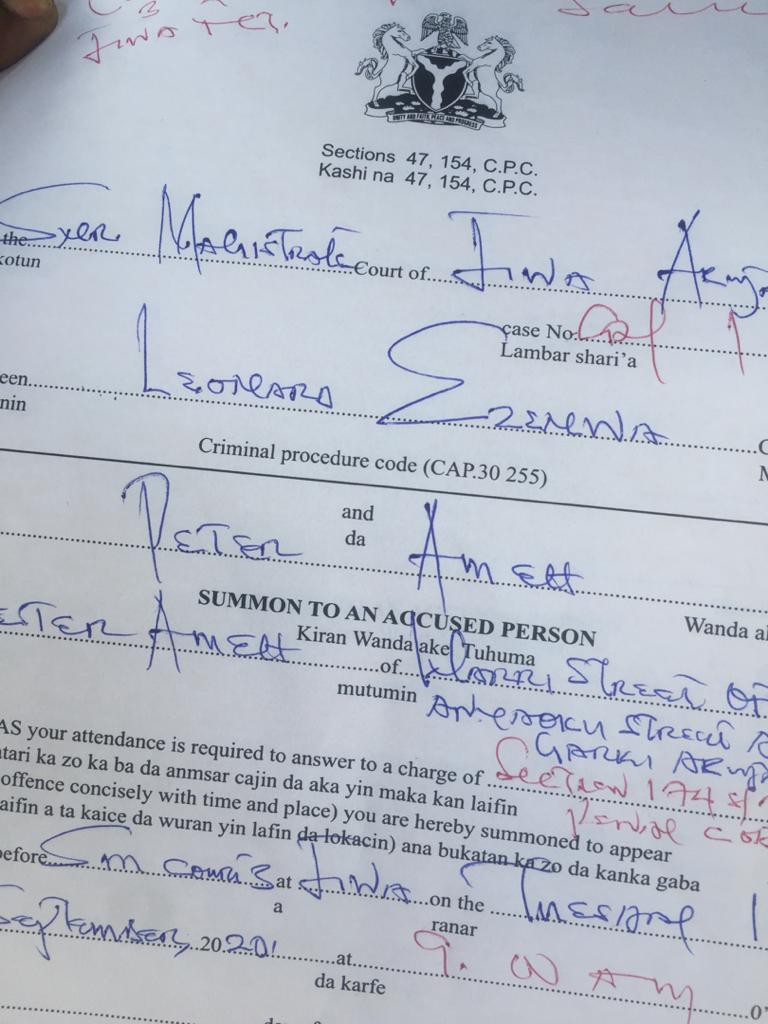 JIWA
UNITY AND FAITH, PEACE AND PROGRESS
Sections 47, 154, C.P.C.
Kashi na 47, 154, C.P.C.
the MAGISTRATE Court of JIWA
kotun
case No:
Lambar shari'a
een LEONARD EZENWA
nin
Criminal procedure code (CAP.30 255)
and
da
PETER AMEH
SUMMON TO AN ACCUSED PERSON
Wanda
Kiran Wanda ake Tuhuma
ETER AMEH of STREET
mutumin STREET
GARKI
AS your attendance is required to answer to a charge of Section 174
atari ka zo ka ba da anmsar cajin da aka yin maka kan laifin
offence concisely with time and place) you are hereby summoned to appear
laifin a ta kaice da wuran yin lafin da lokacin) ana bukatan ka zo da kanka gaba
before Sm court 3 at JIWA on the TUESDAY 1
a
ranar
September, 2020 at 9.00 AM
da karfe